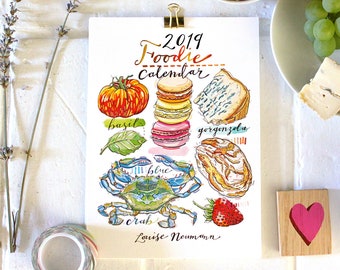 2019
Foodie
Calendar
basil
gorgonzola
blue
crab
Louise Neumann